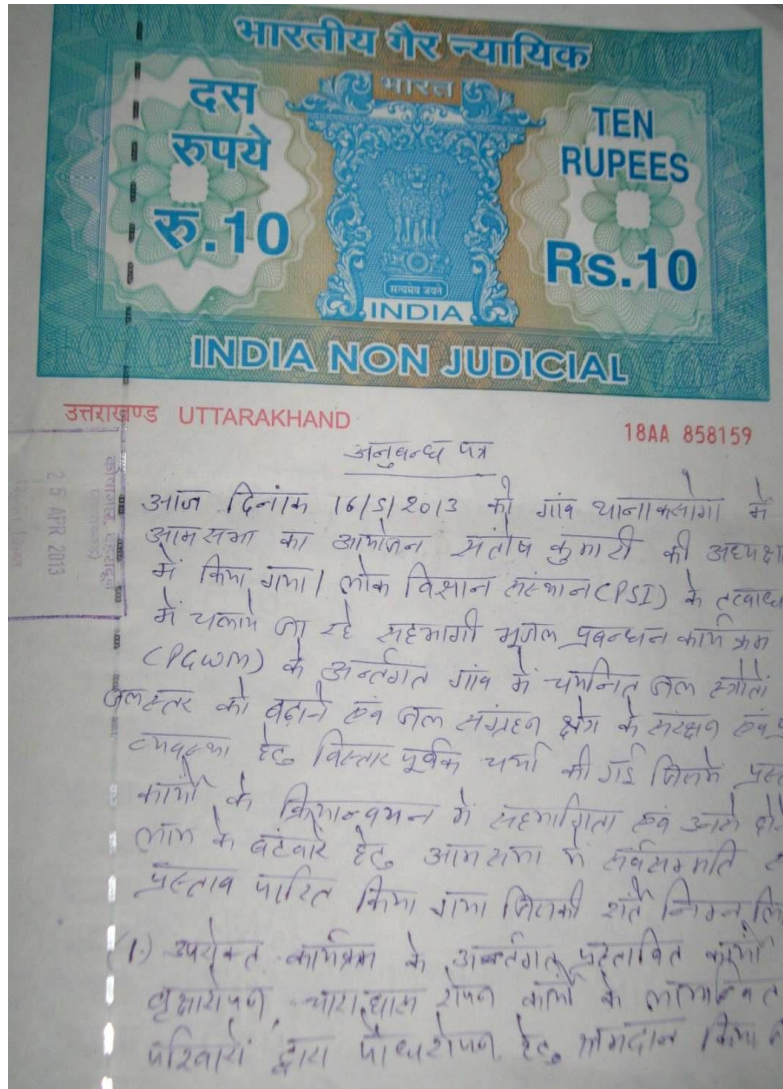 भारतीय गैर न्यायिक
भारत
दस
रुपये
रु.10
TEN
RUPEES
Rs.10
सत्यमेव जयते
INDIA
INDIA NON JUDICIAL
उत्तराखण्ड UTTARAKHAND
18AA 858159
कोषागार, देहरादून
25 APR 2013
अनुबन्ध पत्र
आज दिनांक 16/5/2013 को गांव थानाकसोगा में
आमसभा का आयोजन संतोष कुमारी की
में किया गया। लोक विज्ञान संस्थान (PSI) के
में चलाये जा रहे सहभागी भूजल प्रबन्धन कार्यक्रम
(PGWM) के अर्न्तगत गांव में चयनित जल स्त्रोतों
जलस्तर को बढ़ाने एंव जल संग्रहण क्षेत्र के संरक्षण एंव
व्यवस्था हेतु विस्तार पूर्वक चर्चा की गई जिसमें
कार्यों के क्रियान्वयन में सहभागिता एंव उनसे
लाभ के बंटवारे हेतु आमसभा में सर्वसम्मति
प्रस्ताव पारित किया गया जिसकी शर्तें निम्न
(1.) उपरोक्त कार्यक्रम के अर्न्तगत प्रस्तावित कार्यों
वृक्षारोपण, चारा घास रोपण कार्यों के
परिवारों द्वारा पौधारोपण हेतु योगदान किया